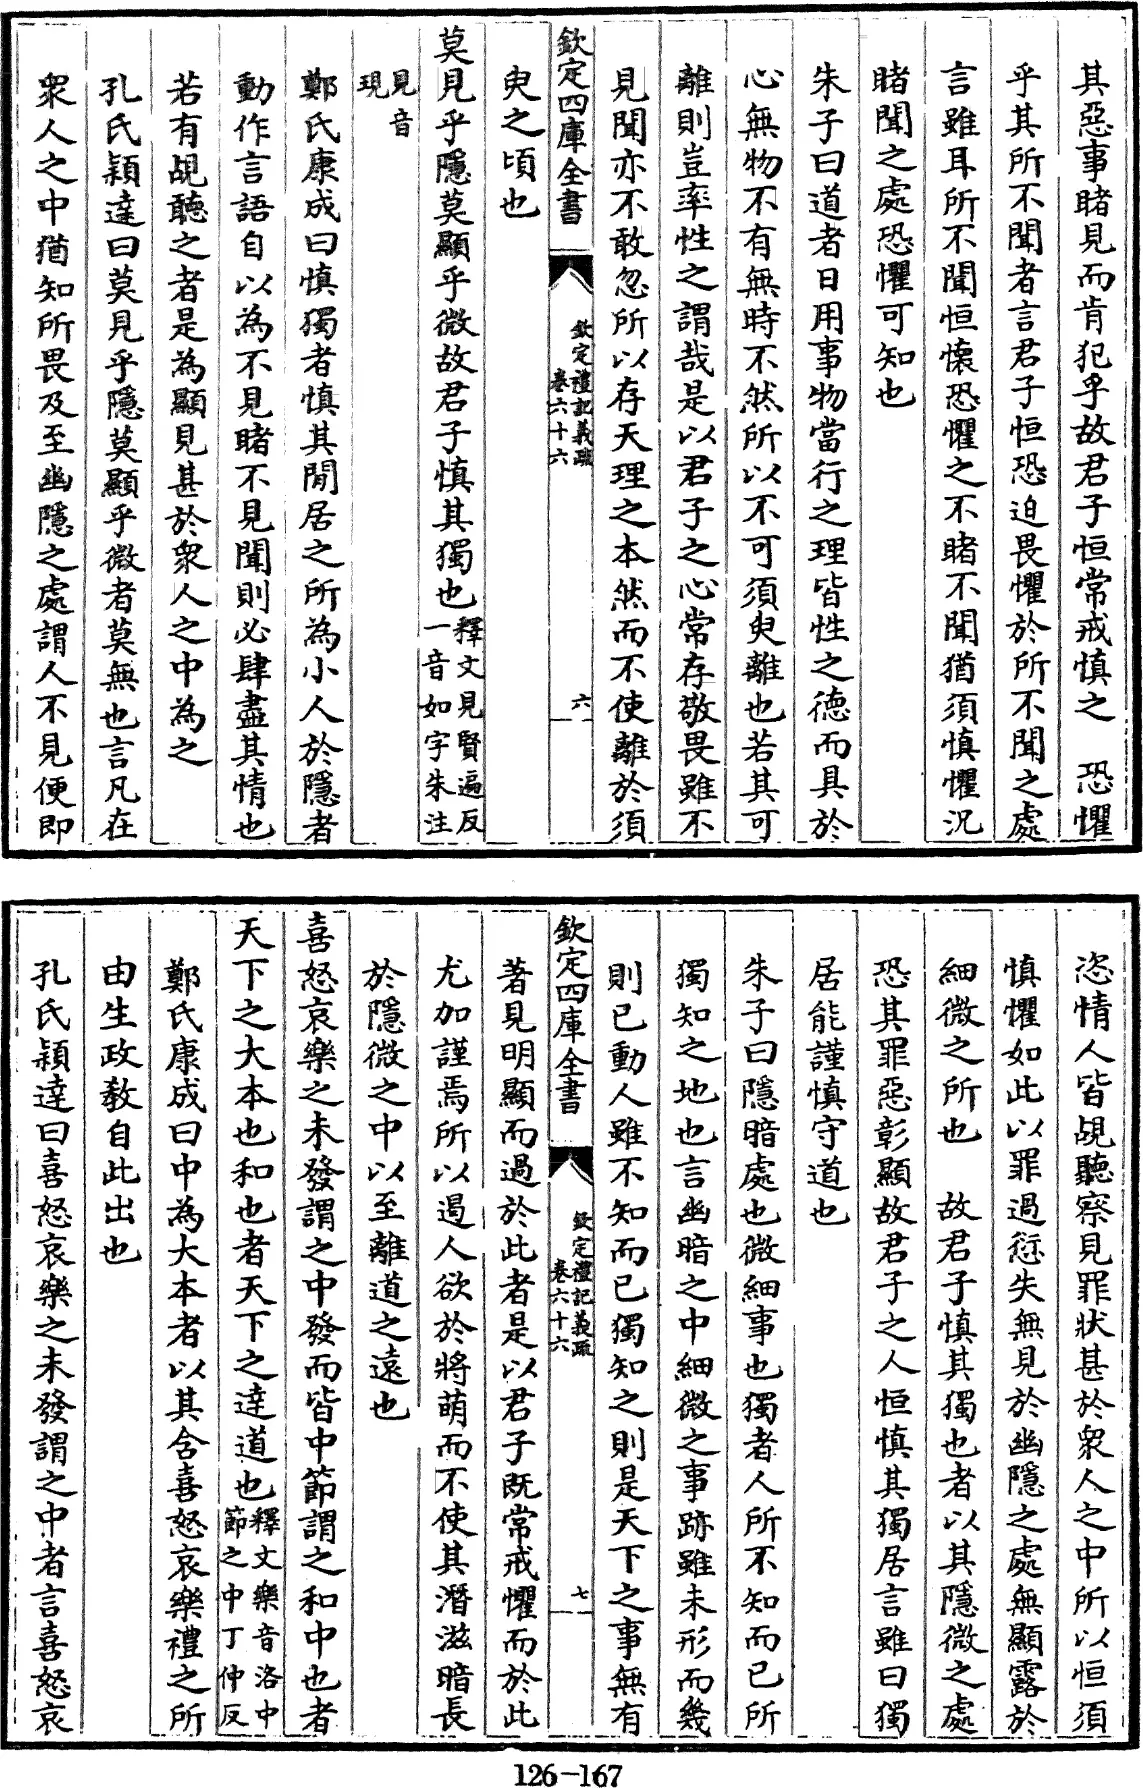 其惡事睹見而肯犯乎故君子恒常戒慎之　恐懼
乎其所不聞者言君子恒恐迫畏懼於所不聞之處
言雖耳所不聞恒懷恐懼之不睹不聞猶須慎懼況
睹聞之處恐懼可知也
朱子曰道者日用事物當行之理皆性之德而具於
心無物不有無時不然所以不可須臾離也若其可
離則豈率性之謂哉是以君子之心常存敬畏雖不
見聞亦不敢忽所以存天理之本然而不使離於須
欽定四庫全書
欽定禮記義疏
卷六十六
六
臾之頃也
莫見乎隱莫顯乎微故君子慎其獨也
釋文見賢遍反
一音如字朱注
見音
現
鄭氏康成曰慎獨者慎其閒居之所為小人於隱者
動作言語自以為不見睹不見聞則必肆盡其情也
若有覘聽之者是為顯見甚於衆人之中為之
孔氏穎達曰莫見乎隱莫顯乎微者莫無也言凡在
衆人之中猶知所畏及至幽隱之處謂人不見便即
恣情人皆覘聽察見罪狀甚於衆人之中所以恒須
慎懼如此以罪過愆失無見於幽隱之處無顯露於
細微之所也　故君子慎其獨也者以其隱微之處
恐其罪惡彰顯故君子之人恒慎其獨居言雖曰獨
居能謹慎守道也
朱子曰隱暗處也微細事也獨者人所不知而已所
獨知之地也言幽暗之中細微之事跡雖未形而幾
則已動人雖不知而已獨知之則是天下之事無有
欽定四庫全書
欽定禮記義疏
卷六十六
七
著見明顯而過於此者是以君子既常戒懼而於此
尤加謹焉所以遏人欲於將萌而不使其潛滋暗長
於隱微之中以至離道之遠也
喜怒哀樂之未發謂之中發而皆中節謂之和中也者
天下之大本也和也者天下之達道也
釋文樂音洛中
節之中丁仲反
鄭氏康成曰中為大本者以其含喜怒哀樂禮之所
由生政教自此出也
孔氏穎達曰喜怒哀樂之未發謂之中者言喜怒哀
126-167